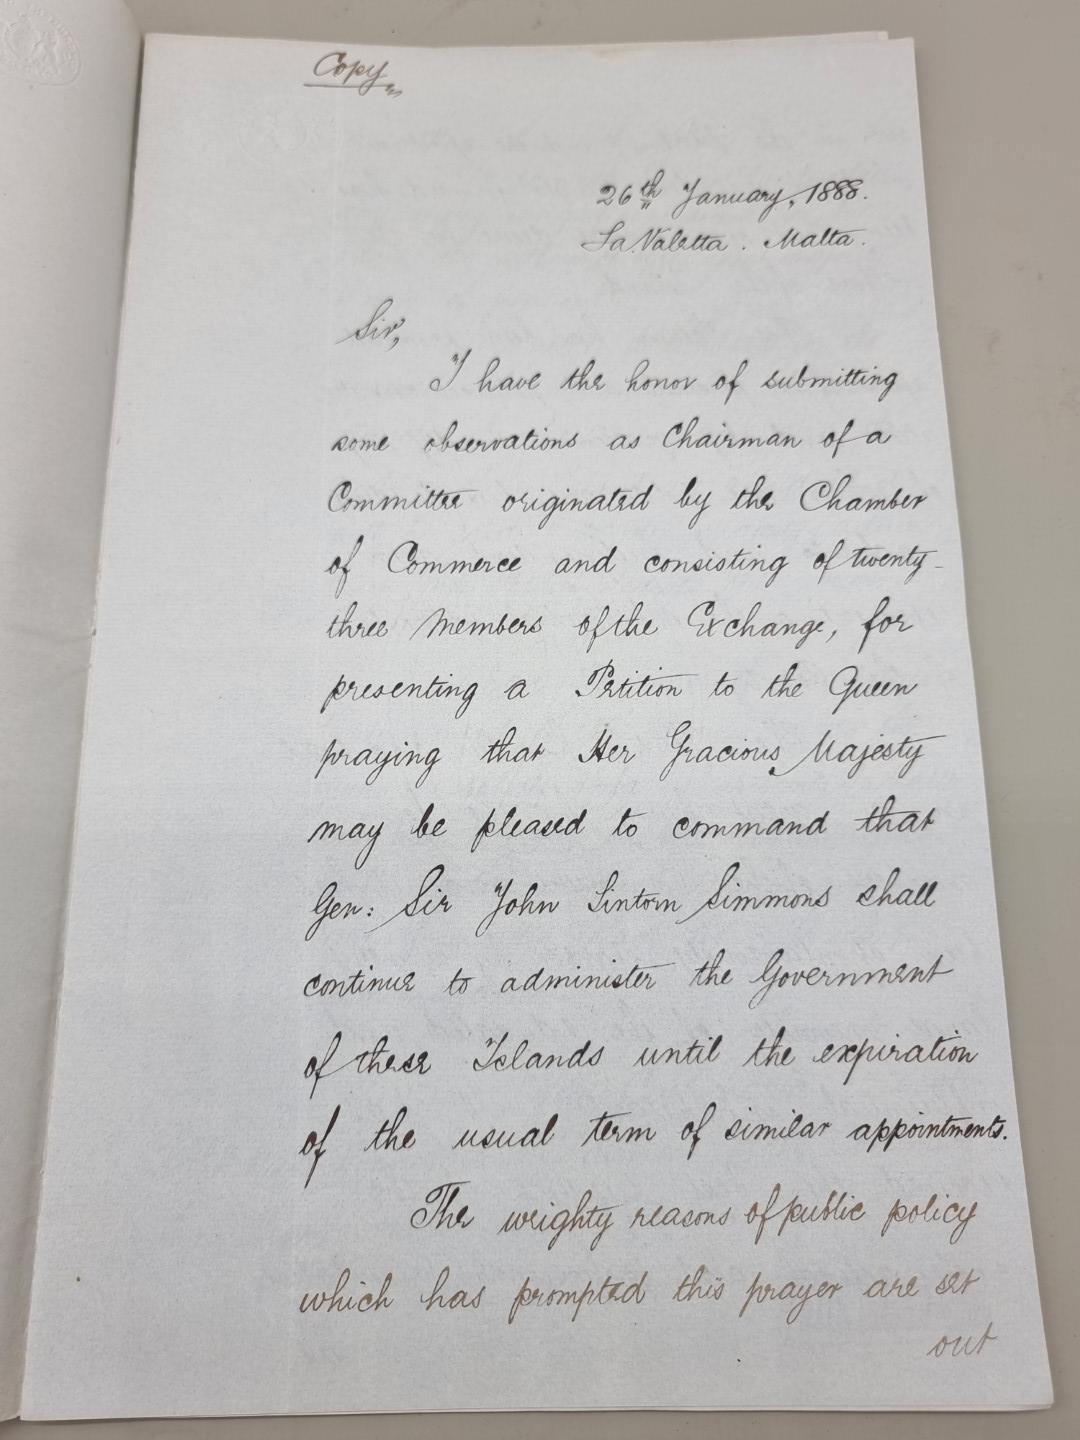 Copy
26th January, 1888.
La Valetta. Malta.
Sir,
I have the honor of submitting
some observations as Chairman of a
Committee originated by the Chamber
of Commerce and consisting of twenty-
three Members of the Exchange, for
presenting a Petition to the Queen
praying that Her Gracious Majesty
may be pleased to command that
Gen: Sir John Lintorn Simmons shall
continue to administer the Government
of these Islands until the expiration
of the usual term of similar appointments.
The weighty reasons of public policy
which has prompted this prayer are set
out